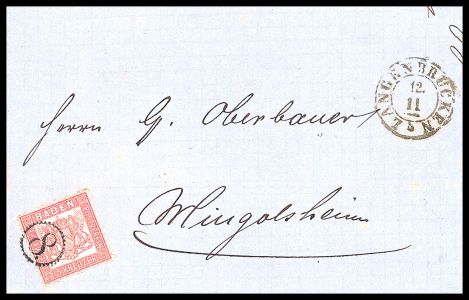 LANGENBRÜCKEN
12.
11
Herrn G. Oberbauer
Mingolsheim
BADEN
8